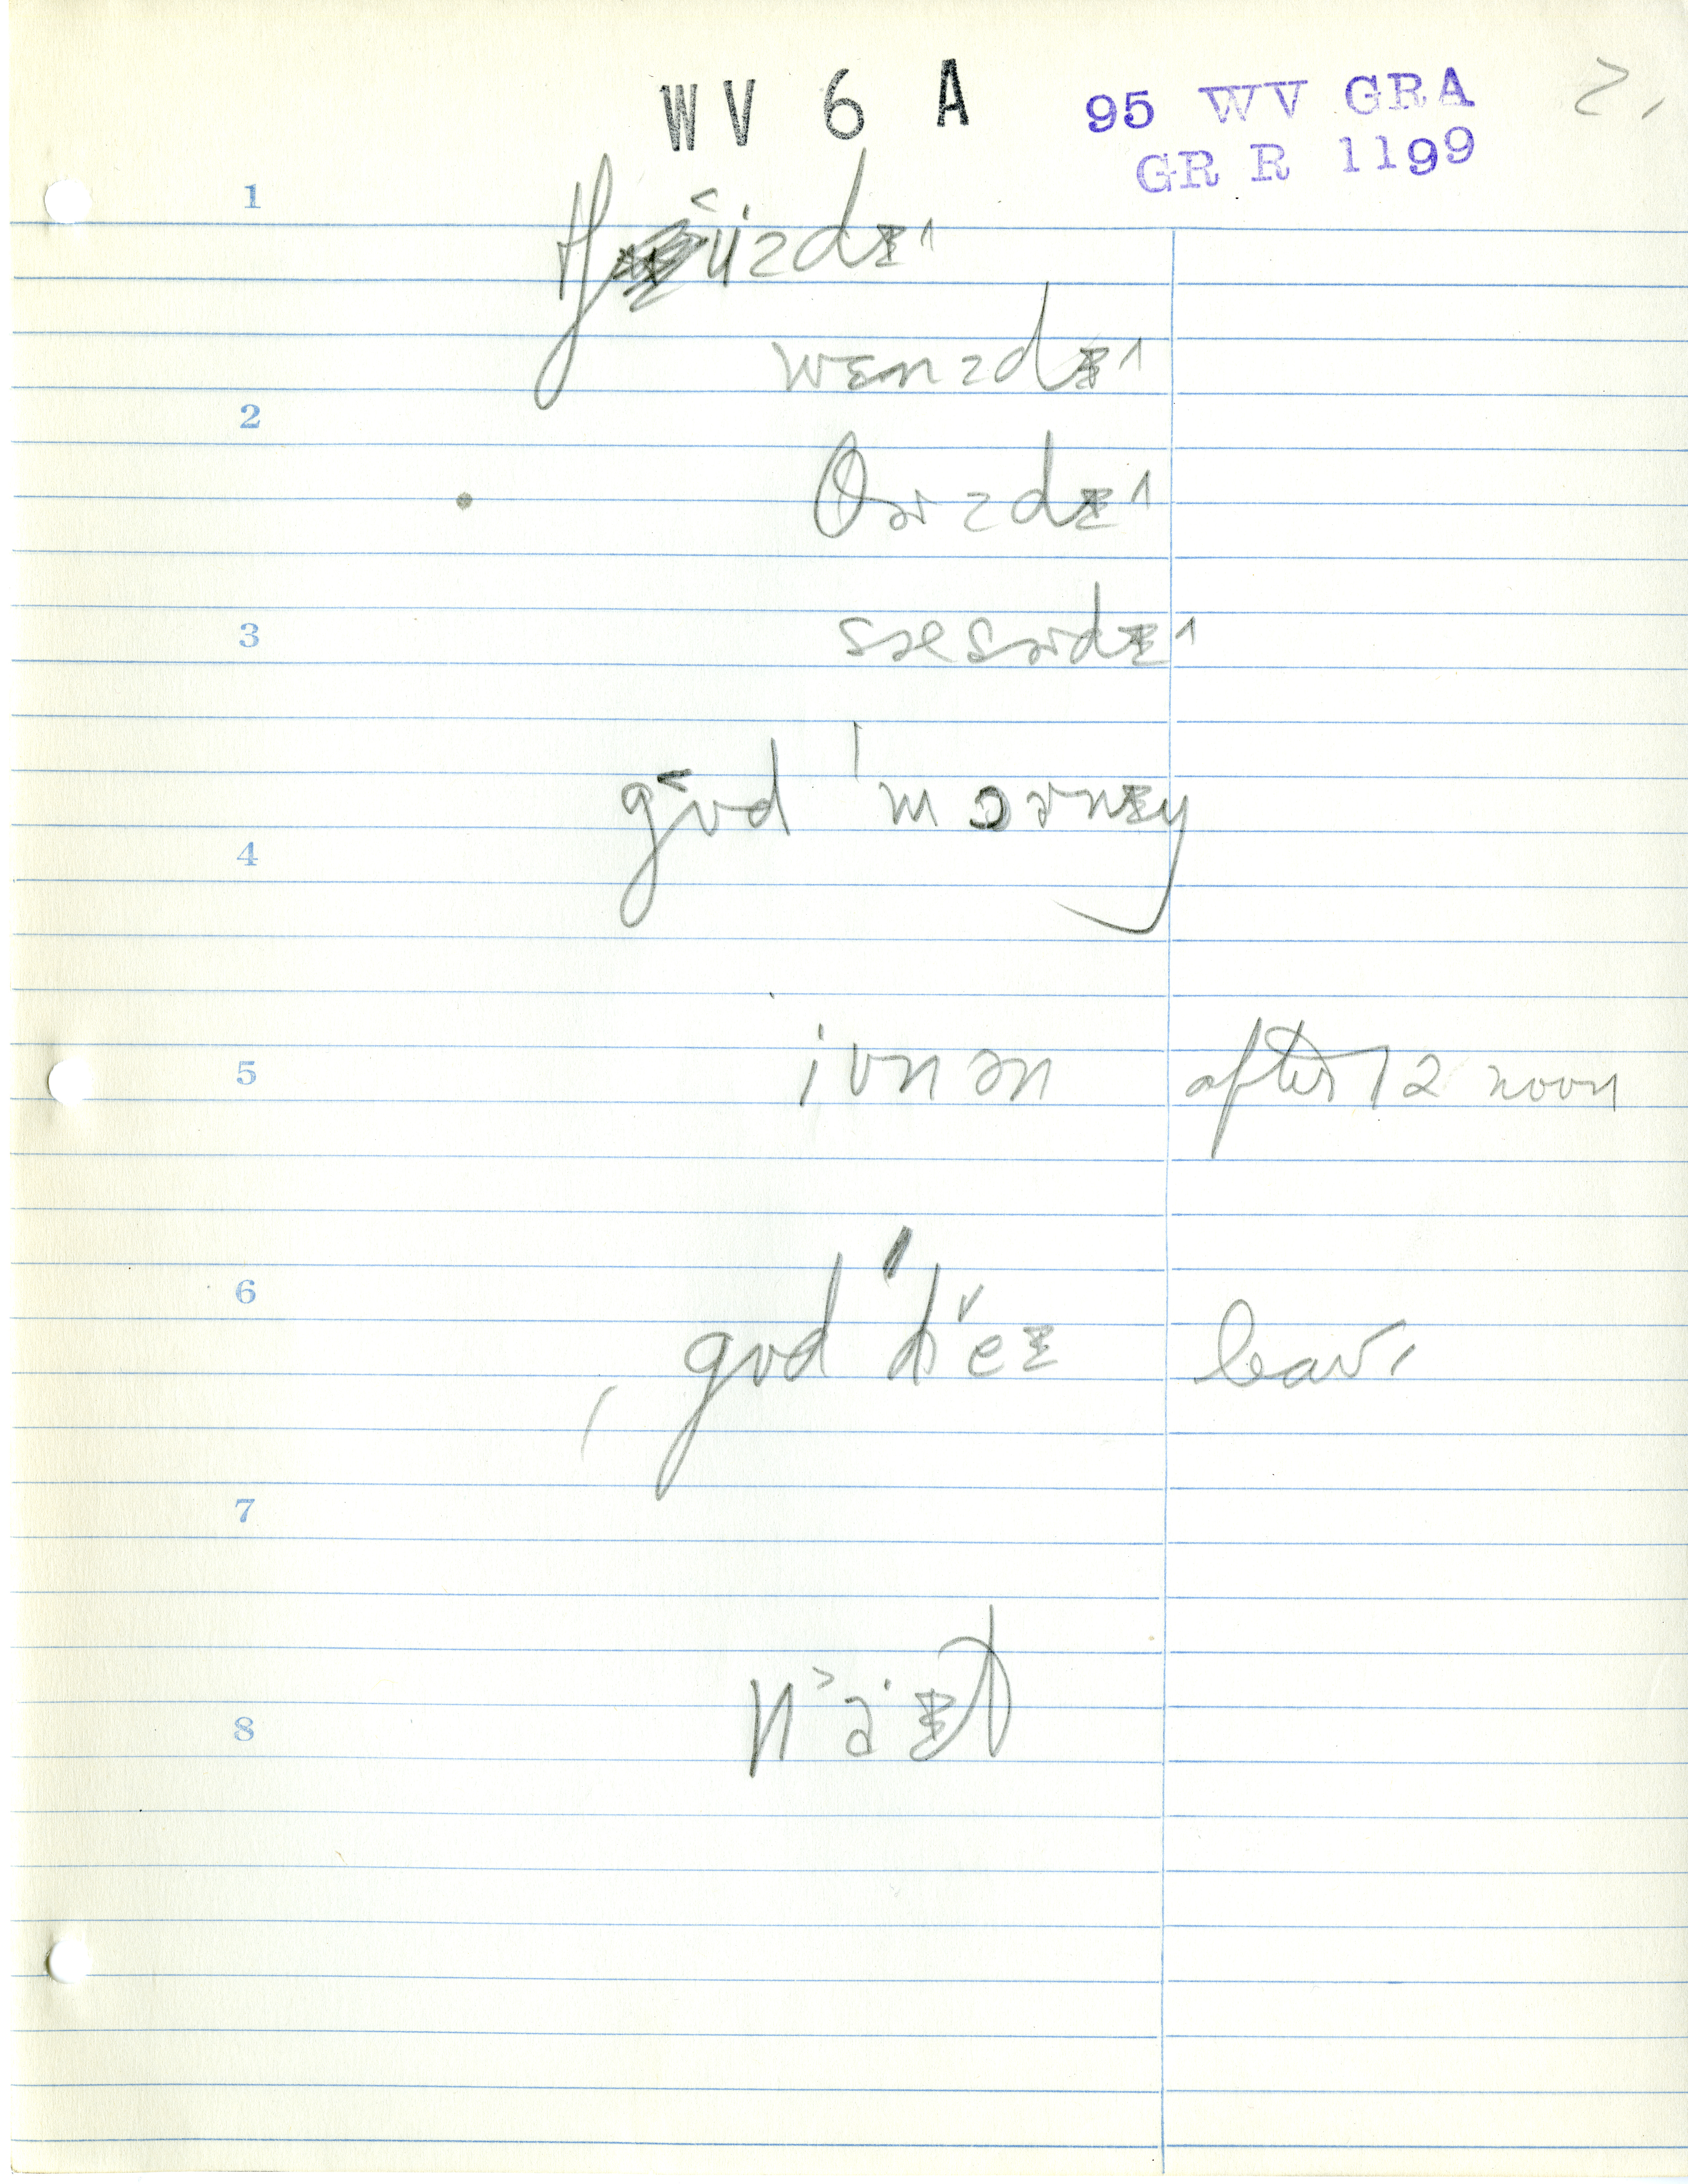 WV 6 A
95 WV GRA
GR R 1199
2.
1
tʃʉ˂ɨzdɪ^
wɛnzdɪ^
2
θɚzdɪ^
3
sæsɚdɪ^
gʊ˂d ˈmɔɚnɪŋ
4
ivnən after 12 noon
5
6
gʊd ˈdeɪ leav.
7
n a˃ɪt
8